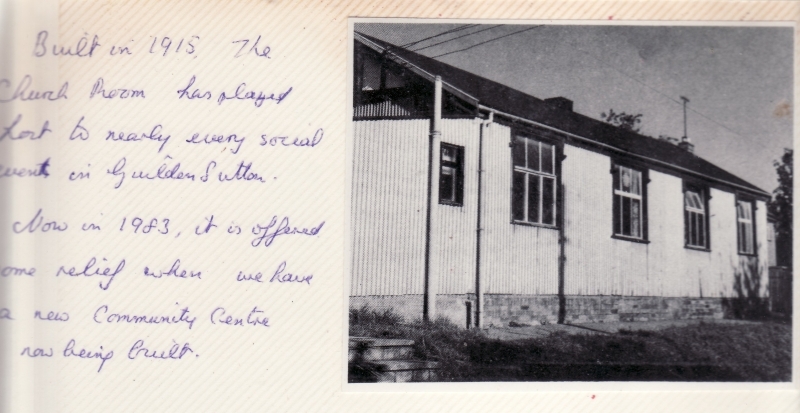 Built in 1915, The
Church Room has played
host to nearly every social
event in Guilden Sutton.
Now in 1983, it is offered
some relief when we have
a new Community Centre
now being built.